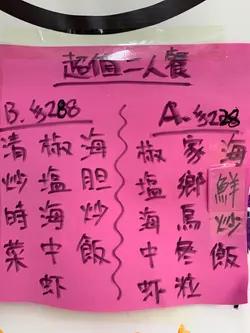 超值二人餐
A. $228
海鮮炒飯
家鄉鳥冬粒
椒塩海中虾
B. $288
海胆炒飯
椒塩海中虾
清炒時菜